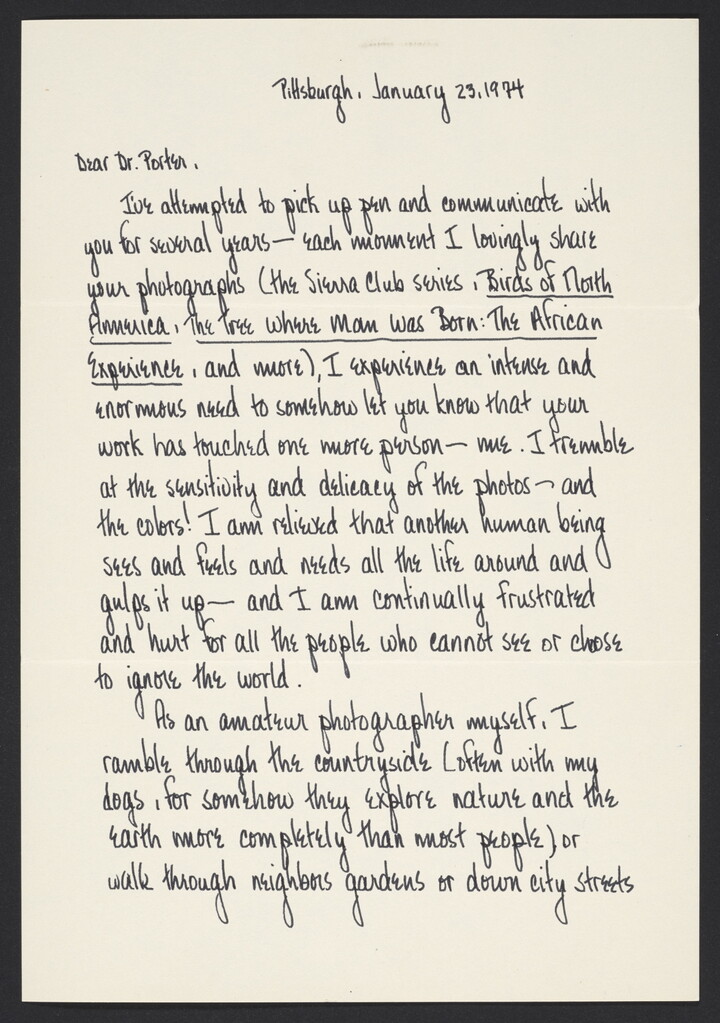 Pittsburgh, January 23, 1974
Dear Dr. Porter,
I've attempted to pick up pen and communicate with
you for several years — each moment I lovingly share
your photographs (the Sierra Club series, Birds of North
America, The Tree Where Man Was Born: The African
Experience, and more), I experience an intense and
enormous need to somehow let you know that your
work has touched one more person — me. I tremble
at the sensitivity and delicacy of the photos — and
the colors! I am relieved that another human being
sees and feels and needs all the life around and
gulps it up — and I am continually frustrated
and hurt for all the people who cannot see or choose
to ignore the world.
As an amateur photographer myself, I
ramble through the countryside (often with my
dogs, for somehow they explore nature and the
earth more completely than most people) or
walk through neighbors gardens or down city streets